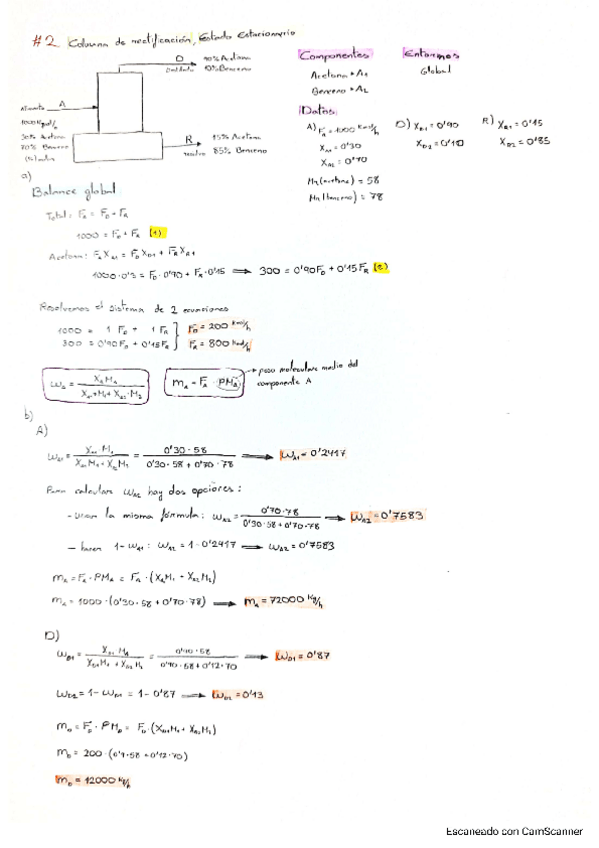 #2 Columna de rectificación, Estado Estacionario
D → 90% Acetona
Destilado 10% Benceno
Alimento A
1000 Kmol/h
30% Acetona
70% Benceno
R → 15% Acetona
residuo 85% Benceno
Componentes
Acetona → A1
Benceno → A2
Entornos
Global
Datos
A) F_A = 1000 Kmol/h
X_A1 = 0'30
X_A2 = 0'70
D) X_D1 = 0'90
X_D2 = 0'10
R) X_R1 = 0'15
X_R2 = 0'85
M1(acetona) = 58
M2(benceno) = 78
a)
Balance global
Total: F_A = F_D + F_R
1000 = F_D + F_R (1)
Acetona: F_A X_A1 = F_D X_D1 + F_R X_R1
1000·0'3 = F_D·0'90 + F_R·0'15 → 300 = 0'90F_D + 0'15F_R (2)
Resolvemos el sistema de 2 ecuaciones
1000 = 1 F_D + 1 F_R } F_D = 200 Kmol/h
300 = 0'90F_D + 0'15F_R } F_R = 800 Kmol/h
m_A = F_A · PM_A → peso molecular medio del
componente A
b)
A)
W_A1 = X_A1 M1 / X_A1 M1 + X_A2 M2 = 0'30·58 / 0'30·58 + 0'70·78 → W_A1 = 0'2417
Para calcular W_A2 hay dos opciones:
- Usar la misma fórmula: W_A2 = 0'70·78 / 0'30·58 + 0'70·78 → W_A2 = 0'7583
- hacer 1 - W_A1: W_A2 = 1 - 0'2417 → W_A2 = 0'7583
m_A = F_A · PM_A = F_A · (X_A1 M1 + X_A2 M2)
m_A = 1000·(0'30·58 + 0'70·78) → m_A = 72000 Kg/h
D)
W_D2 = 1 - W_D1 = 1 - 0'87 → W_D2 = 0'13
m_D = F_D · PM_D = F_D · (X_D1 M1 + X_D2 M2)
m_D = 200·
m_D = 12000 Kg/h
Escaneado con CamScanner